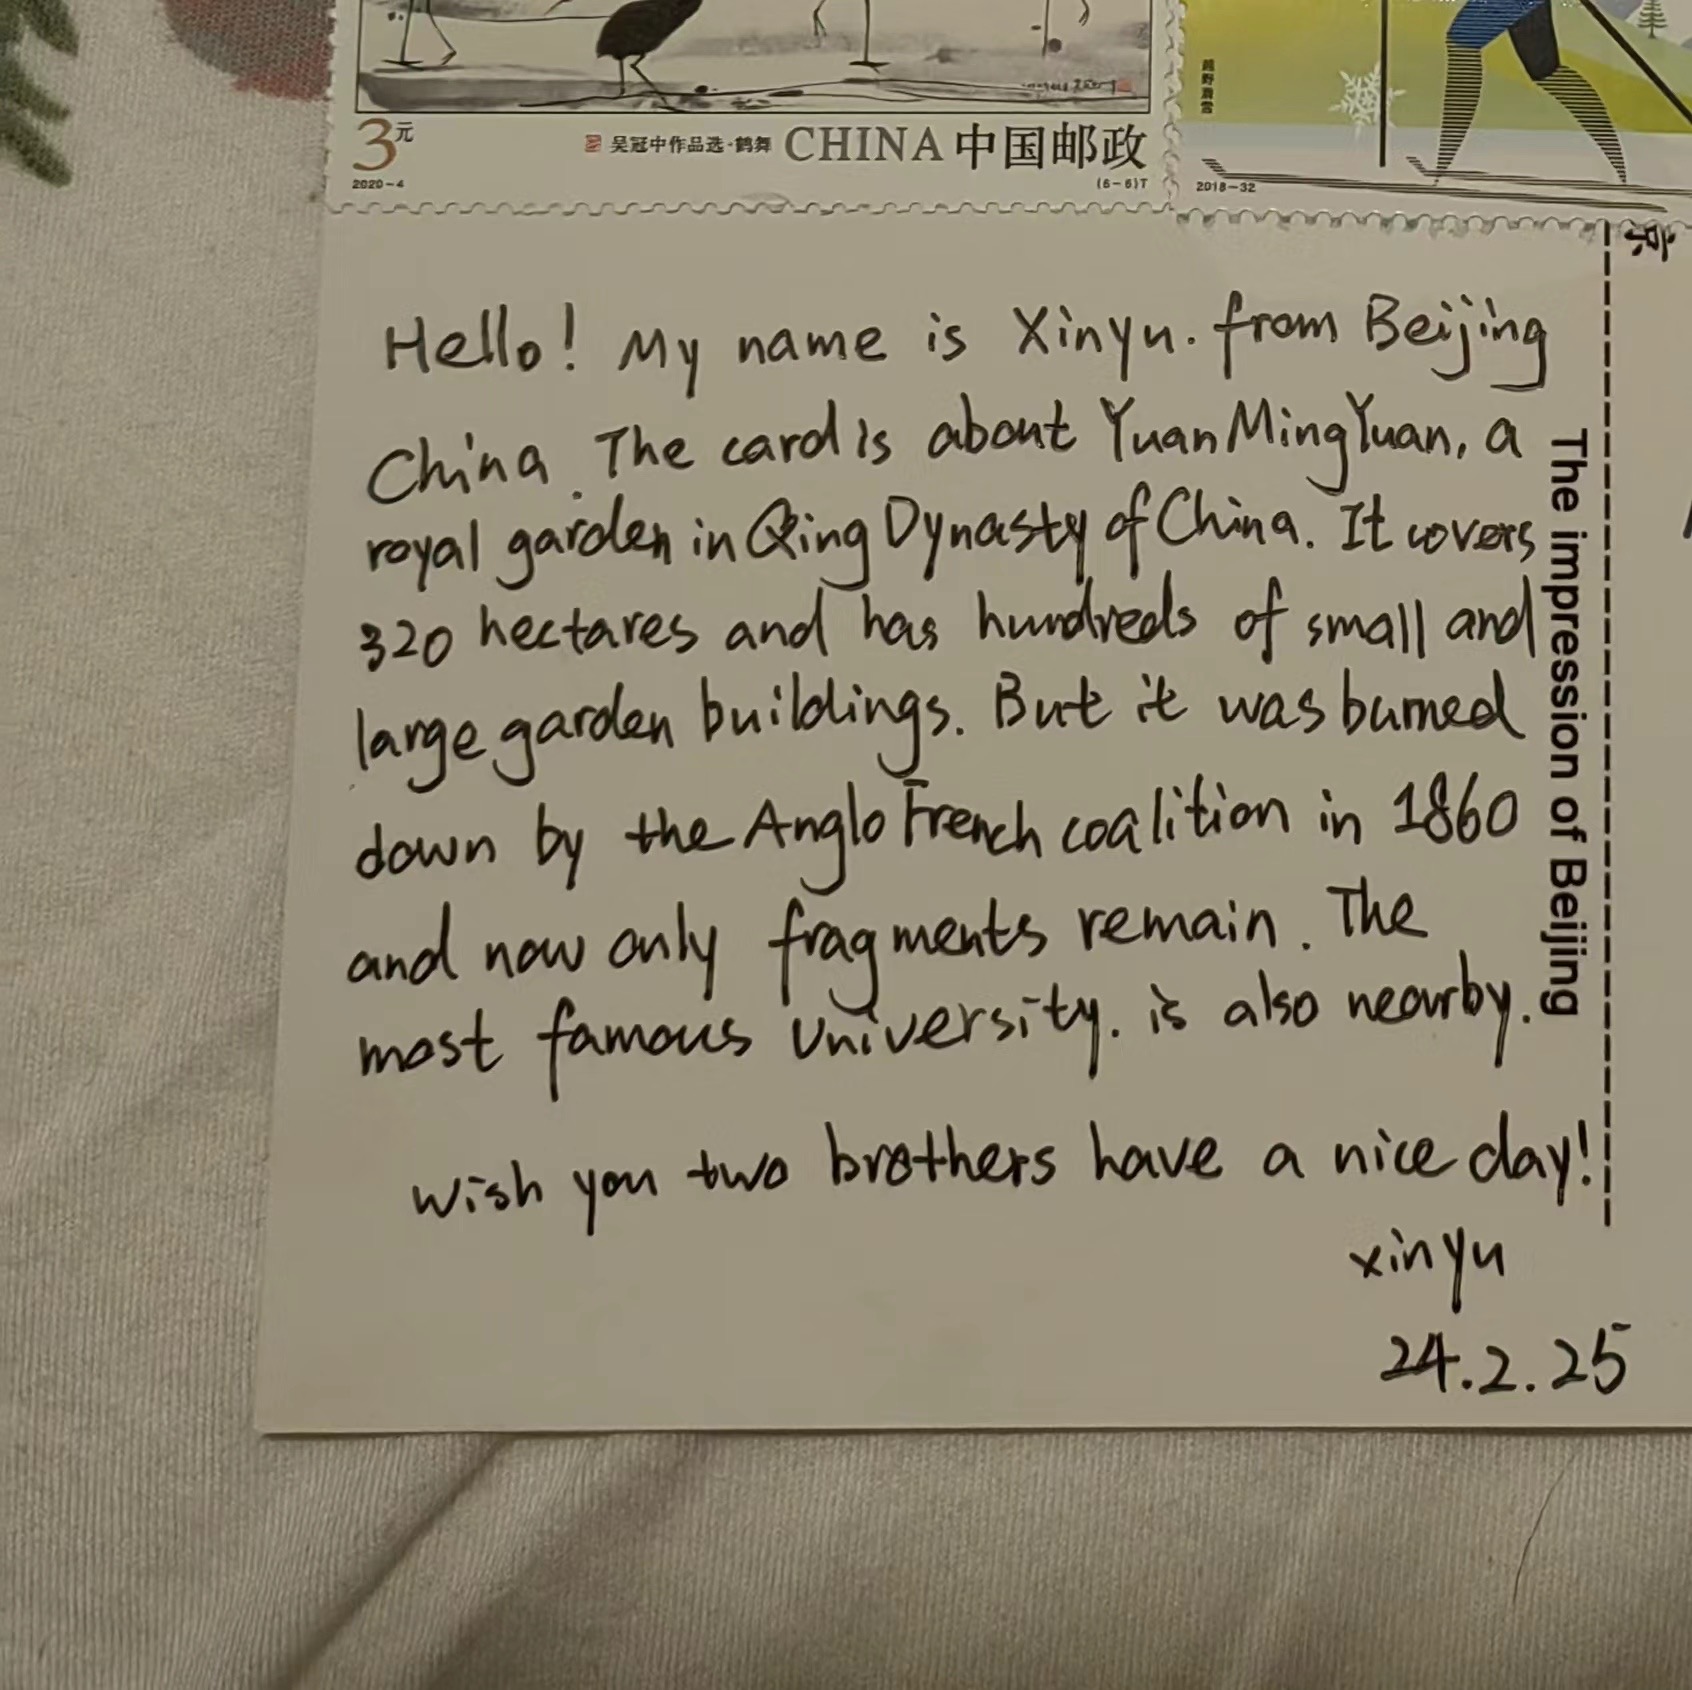 3元
吴冠中作品选·鹤舞 CHINA 中国邮政
2020-4
(6-6)T
越野滑雪
2018-32
Hello! My name is Xinyu. from Beijing
China. The card is about YuanMingYuan, a
royal garden in Qing Dynasty of China. It covers
320 hectares and has hundreds of small and
large garden buildings. But it was burned
down by the Anglo French coalition in 1860
and now only fragments remain. The
most famous University. is also nearby.
Wish you two brothers have a nice day!
xinyu
24.2.25
The impression of Beijing